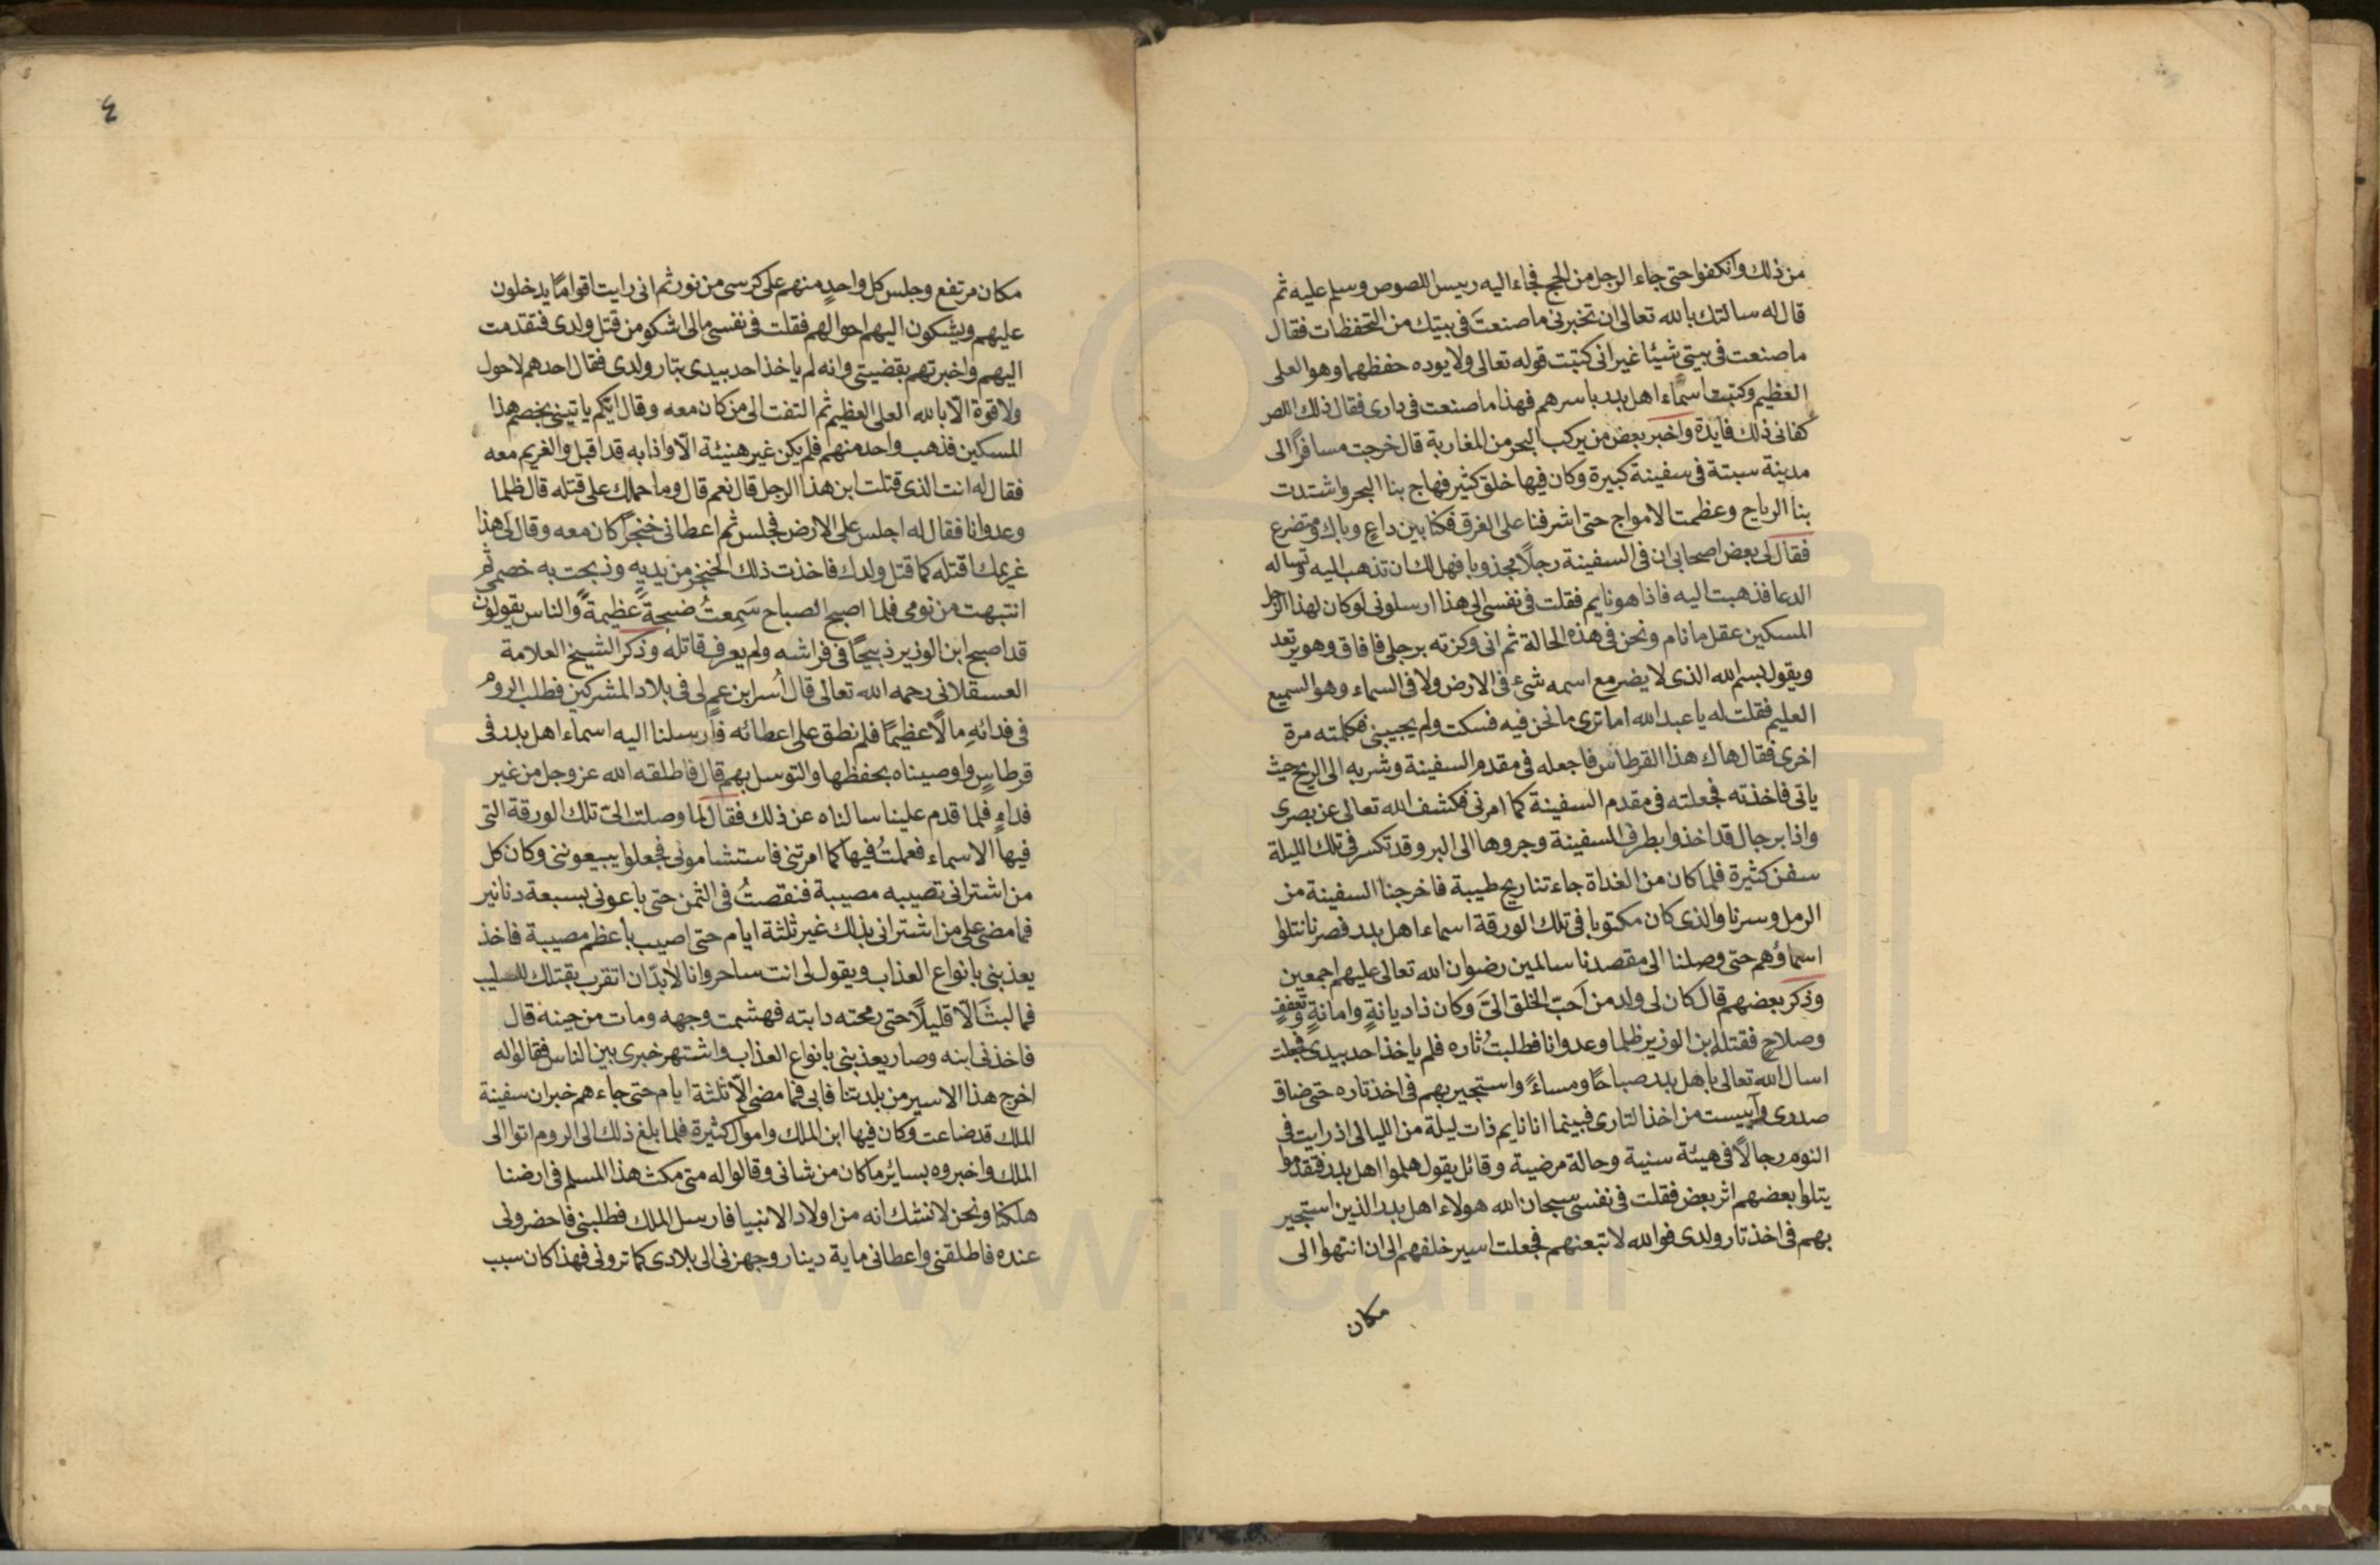 من ذلك وانكفوا حتى جاء الرجل من الحج فجاء اليه رييس اللصوص وسلم عليه ثم
قال له سالتك بالله تعالى ان تخبرنى ما صنعتَ فى بيتك من التحفظات فقال
ما صنعت فى بيتى شيئا غير انى كتبت قوله تعالى ولا يوده حفظهما وهو العلى
العظيم وكتبت اسماء اهل بدر باسرهم فهذا ما صنعت فى دارى فقال ذلك اللص
كفانى ذلك فايدة واخبر بعض من يركب البحر من المغاربة قال خرجت مسافراً الى
مدينة سبتة فى سفينة كبيرة وكان فيها خلق كثير فهاج بنا البحر واشتدت
بنا الرياح وعظمت الامواج حتى اشرفنا على الغرق فكنا بين داعٍ وباك ومتضرع
فقال لى بعض اصحابى ان فى السفينة رجلاً مجذوبا فهل لك ان تذهب اليه وتساله
الدعا فذهبت اليه فاذا هو نايم فقلت فى نفسى الى هذا ارسلونى لو كان لهذا الرجل
المسكين عقل ما نام ونحن فى هذه الحالة ثم انى وكزته برجلى فافاق وهو يرتعد
ويقول بسم الله الذى لا يضر مع اسمه شىء فى الارض ولا فى السماء وهو السميع
العليم فقلت له يا عبد الله اما ترى ما نحن فيه فسكت ولم يجيبنى فكلمته مرة
اخرى فقال هاك هذا القرطاس فاجعله فى مقدم السفينة وشر به الى الريح حيث
ياتى فاخذته فجعلته فى مقدم السفينة كما امرنى فكشف الله تعالى عن بصرى
واذا برجال قد اخذوا بطرف السفينة وجروها الى البر وقد تكسر فى تلك الليلة
سفن كثيرة فلما كان من الغداة جاءتنا ريح طيبة فاخرجنا السفينة من
الرمل وسرنا والذى كان مكتوبا فى تلك الورقة اسماء اهل بدر فصرنا نتلوا
اسماؤهم حتى وصلنا الى مقصدنا سالمين رضوان الله تعالى عليهم اجمعين
وذكر بعضهم قال كان لى ولد من اَحبّ الخلق الىَّ وكان ذا ديانةٍ وامانةٍ وتعففٍ
وصلاحٍ فقتله ابن الوزير ظلما وعدوانا فطلبتُ ثاره فلم ياخذ احد بيدى فجعلت
اسال الله تعالى باهل بدر صباحًا ومساءً واستجير بهم فى اخذ ثاره حتى ضاق
صدرى وآييست من اخذ الثارى فبينما انا نايم ذات ليلة من الليالى اذ رايت فى
النوم رجالاً فى هيئة سنية وحالة مرضية وقائل يقول هلموا اهل بدر فتقدموا
يتلوا بعضهم اثر بعض فقلت فى نفسى سبحان الله هولاء اهل بدر الذين استجير
بهم فى اخذ ثار ولدى فوالله لاتبعنهم فجعلت اسير خلفهم الى ان انتهوا الى
مكان
٤
مكان مرتفع وجلس كل واحدٍ منهم على كرسى من نور ثم انى رايت اقوامًا يدخلون
عليهم ويشكون اليهم احوالهم فقلت فى نفسى مالى اشكو من قتل ولدى فتقدمت
اليهم واخبرتهم بقضيتى وانه لم ياخذ احد بيدى بثار ولدى فقال احدهم لا حول
ولا قوة الّا بالله العلى العظيم ثم التفت الى من كان معه وقال ايّكم ياتينى بخصم هذا
المسكين فذهب واحد منهم فلم يكن غير هنيئة الّا واذا به قد اقبل والغريم معه
فقال له انت الذى قتلت ابن هذا الرجل قال نعم قال وما حملك على قتله قال ظلما
وعدوانا فقال له اجلس على الارض فجلس ثم اعطانى خنجراً كان معه وقال لى هذا
غريمك اقتله كما قتل ولدك فاخذت ذلك الخنجر من يديهِ وذبحت به خصمى ثم
انتبهت من نومى فلما اصبح الصباح سَمِعتُ ضيجةً عظيمةً والناس يقولون
قد اصبح ابن الوزير ذبيحًا فى فراشه ولم يعرف قاتله وذكر الشيخ العلامة
العسقلانى رحمه الله تعالى قال اُسر ابن عمٍ لى فى بلاد المشركين فطلب الروم
فى فدائهِ مالاً عظيمًا فلم نطق على اعطائه فارسلنا اليه اسماء اهل بدر فى
قرطاسٍ واوصيناه بحفظها والتوسل بهم قال فاطلقه الله عز وجل من غير
فداءٍ فلما قدم علينا سالناه عن ذلك فقال لما وصلت الىّ تلك الورقة التى
فيها الاسماء فعملتُ فيها كما امرتنى فاستشامونى فجعلوا يبيعوننى وكان كل
من اشترانى تصيبه مصيبة فنقصتُ فى الثمن حتى باعونى بسبعة دنانير
فما مضى على من اشترانى بذلك غير ثلثة ايام حتى اصيب باعظم مصيبة فاخذ
يعذبنى بانواع العذاب ويقول لى انت ساحر وانا لابدّ ان اتقرب بقتلك للصليب
فما لبث الّا قليلاً حتى رمحته دابته فهشمت وجهه ومات من حينه قال
فاخذنى ابنه وصار يعذبنى بانواع العذاب واشتهر خبرى بين الناس فقالوا له
اخرج هذا الاسير من بلدتنا فابى فما مضى الّا ثلثة ايام حتى جاءهم خبر ان سفينة
الملك قد ضاعت وكان فيها ابن الملك واموال كثيرة فلما بلغ ذلك الى الروم اتوا الى
الملك واخبروه بسائر ما كان من شانى وقالوا له متى مكث هذا المسلم فى ارضنا
هلكنا ونحن لا نشك انه من اولاد الانبيا فارسل الملك فطلبنى فاحضرونى
عنده فاطلقنى واعطانى ماية دينار وجهزنى الى بلادى كما ترونى فهذا كان سبب